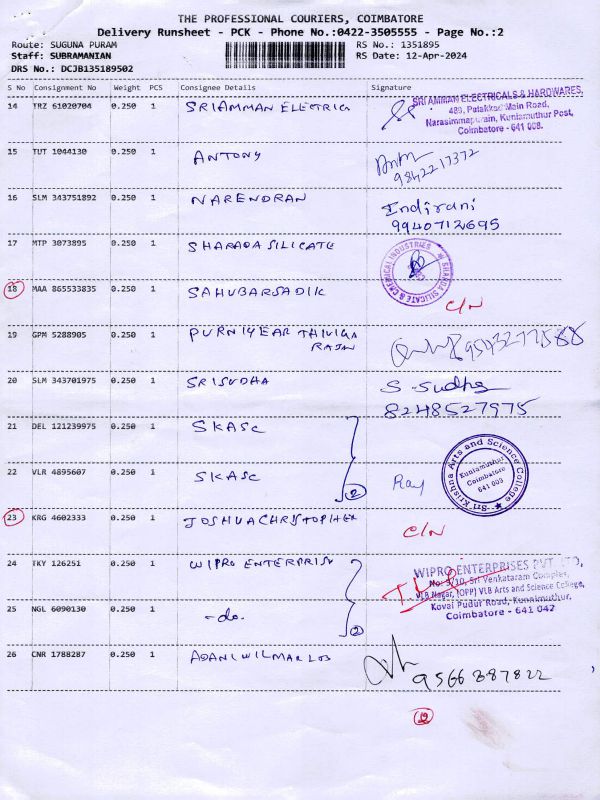 THE PROFESSIONAL COURIERS, COIMBATORE
Delivery Runsheet - PCK - Phone No.:0422-3505555 - Page No.:2
Route: SUGUNA PURAM RS No.: 1351895
Staff: SUBRAMANIAN RS Date: 12-Apr-2024
DRS No.: DCJB135189502
S No Consignment No Weight PCS Consignee Details Signature
14 TRZ 61020704 0.250 1 SRIAMMAN ELECTRIC
SRI AMMAN ELECTRICALS & HARDWARES,
489, Palakkad Main Road,
Narasimmapuram, Kuniamuthur Post,
Coimbatore - 641 008.
15 TUT 1044130 0.250 1 ANTONY
9842217372
16 SLM 343751892 0.250 1 NARENDRAN Indirani
9940712695
17 MTP 3073895 0.250 1 SHARADA SILICATE
SHARDA SILICATE & CHEMICAL INDUSTRIES
18 MAA 865533835 0.250 1 SAHUBARSADIK C/N
19 GPM 5288905 0.250 1
RAJAN
20 SLM 343701975 0.250 1 SRISUDHA S. Sudha
8248527975
21 DEL 121239975 0.250 1 SKASC
22 VLR 4895607 0.250 1 SKASC 2 Ray
Sri Krishna Arts and Science College
Kuniamuthur
Coimbatore
641 008
23 KRG 4602333 0.250 1 JOSHUACHRISTOPHER C/N
24 TKY 126251 0.250 1 WIPRO ENTERPRISE
WIPRO ENTERPRISES PVT. LTD,
No: 3/10, Sri Venkataram Complex,
VLB Nagar, (OPP) VLB Arts and Science College,
Kovai Pudur Road, Kuniamuthur,
Coimbatore - 641 042
25 NGL 6090130 0.250 1 -do. 2
26 CNR 1788287 0.250 1 ADANI WILMAR LTD
9566387822